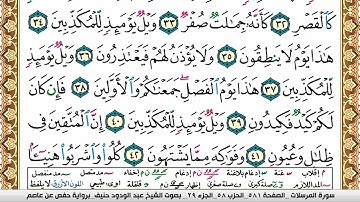 كَٱلْقَصْرِ ٣٢ كَأَنَّهُۥ جِمَٰلَتٌ صُفْرٌ ٣٣ وَيْلٌ يَوْمَئِذٍ لِّلْمُكَذِّبِينَ ٣٤
هَٰذَا يَوْمُ لَا يَنطِقُونَ ٣٥ وَلَا يُؤْذَنُ لَهُمْ فَيَعْتَذِرُونَ ٣٦ وَيْلٌ يَوْمَئِذٍ
لِّلْمُكَذِّبِينَ ٣٧ هَٰذَا يَوْمُ ٱلْفَصْلِ جَمَعْنَٰكُمْ وَٱلْأَوَّلِينَ ٣٨ فَإِن كَانَ
لَكُمْ كَيْدٌ فَكِيدُونِ ٣٩ وَيْلٌ يَوْمَئِذٍ لِّلْمُكَذِّبِينَ ٤٠ إِنَّ ٱلْمُتَّقِينَ فِى
ظِلَٰلٍ وَعُيُونٍ ٤١ وَفَوَٰكِهَ مِمَّا يَشْتَهُونَ ٤٢ كُلُوا۟ وَٱشْرَبُوا۟ هَنِيٓـًٔۢا
سورة المرسلات الصفحة ٥٨١ الحزب ٥٨ الجزء ٢٩ بصوت الشيخ عبد الودود حنيف برواية حفص عن عاصم